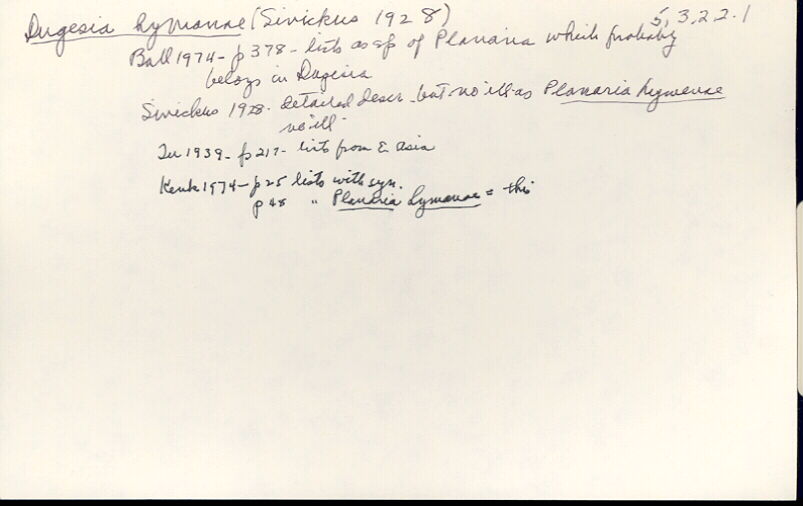 Dugesia hymanae (Sivickus 1928) 5,3,2,2.1
Ball 1974 - p 378 - lists as sp of Planaria which probably
belongs in Dugesia
Sivickus 1928. detailed descr - but no ill - as Planaria hymanae
no ill.
Tu 1939 - p 217 - lists from E Asia
Kenk 1974 - p 25 lists with syn.
p 48 " Planaria hymanae = this